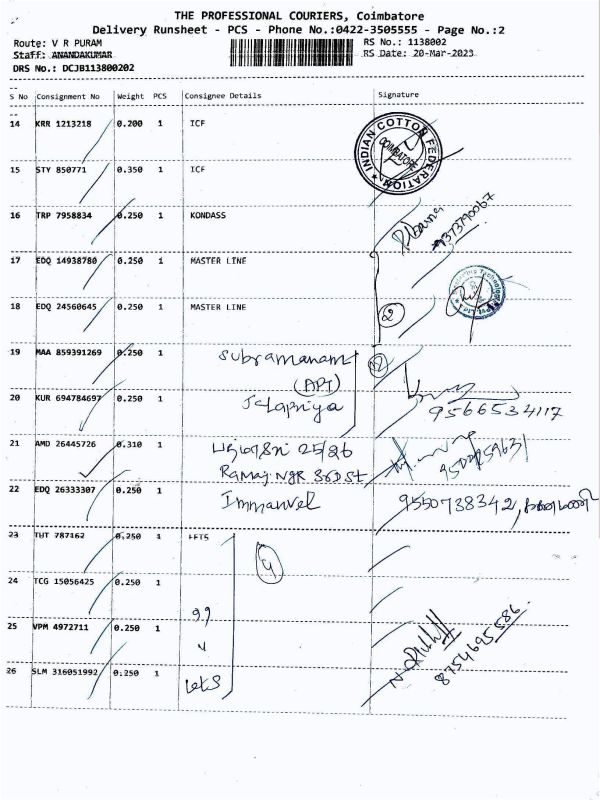 THE PROFESSIONAL COURIERS, Coimbatore
Delivery Runsheet - PCS - Phone No.:0422-3505555 - Page No.:2
Route: V R PURAM
RS No.: 1138002
Staff: ANANDAKUMAR
RS Date: 20-Mar-2023
DRS No.: DCJB113800202
S No Consignment No Weight PCS Consignee Details Signature
14 KRR 1213218 0.200 1 ICF
INDIAN COTTON FEDERATION
COIMBATORE
15 STY 850771 0.350 1 ICF
16 TRP 7958834 0.250 1 KONDASS
9373790067
17 EDQ 14938780 0.250 1 MASTER LINE
18 EDQ 24560645 0.250 1 MASTER LINE
2
19 MAA 859391269 0.250 1 Subramanam
(APT)
20 KUR 694784697 0.250 1
9566534117
21 AMD 26445726 0.310 1 25/86
Ramaj Ngr 3rd St
22 EDQ 26333307 0.250 1 Immanvel
9550738342,
23 TUT 787162 0.250 1 LETS
24 TCG 15056425 0.250 1
25 VPM 4972711 0.250 1
8754695586
26 SLM 316051992 0.250 1 Lets